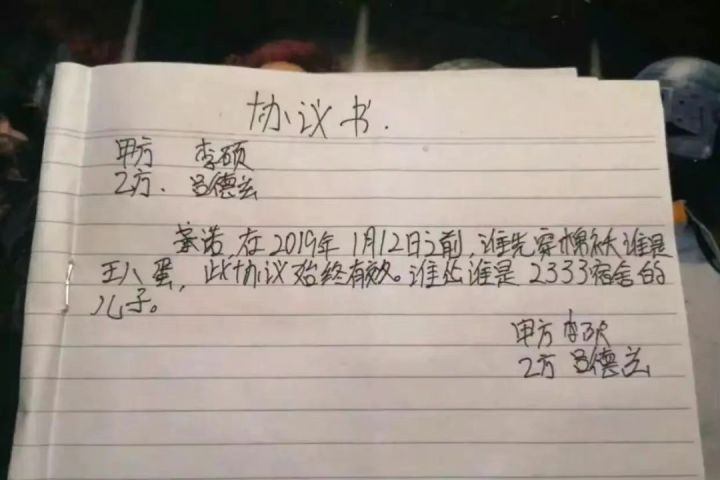 协议书.
甲方 李硕
乙方. 吕德兰
承诺,在2019年1月12日之前,谁先穿棉衤夭谁是
王八蛋,此协议始终有效。谁怂谁是2333宿舍的
儿子。
甲方 李硕
乙方 吕德兰